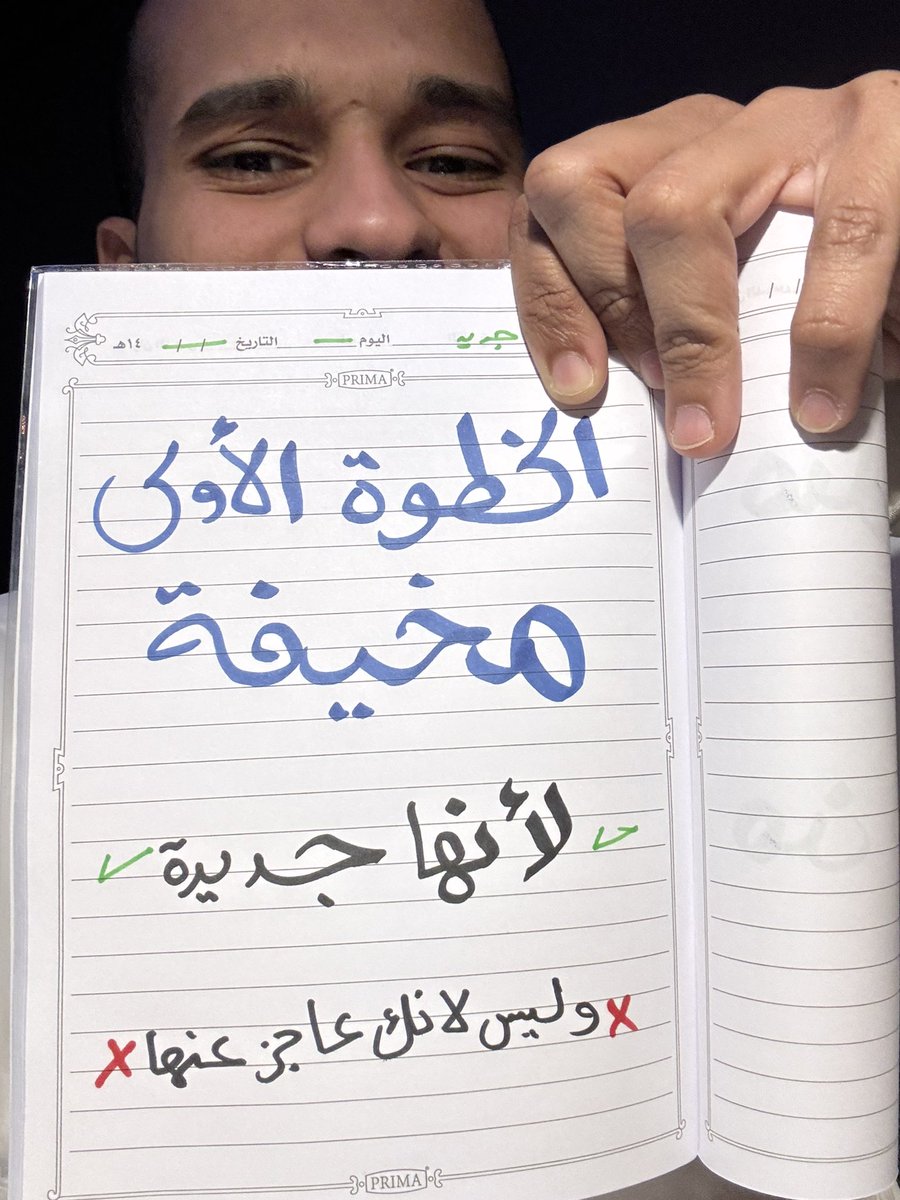 جديد اليوم التاريخ / / ١٤هـ
PRIMA
الخطوة الأولى
مخيفة
لأنها جديدة
وليس لانك عاجز عنها
PRIMA